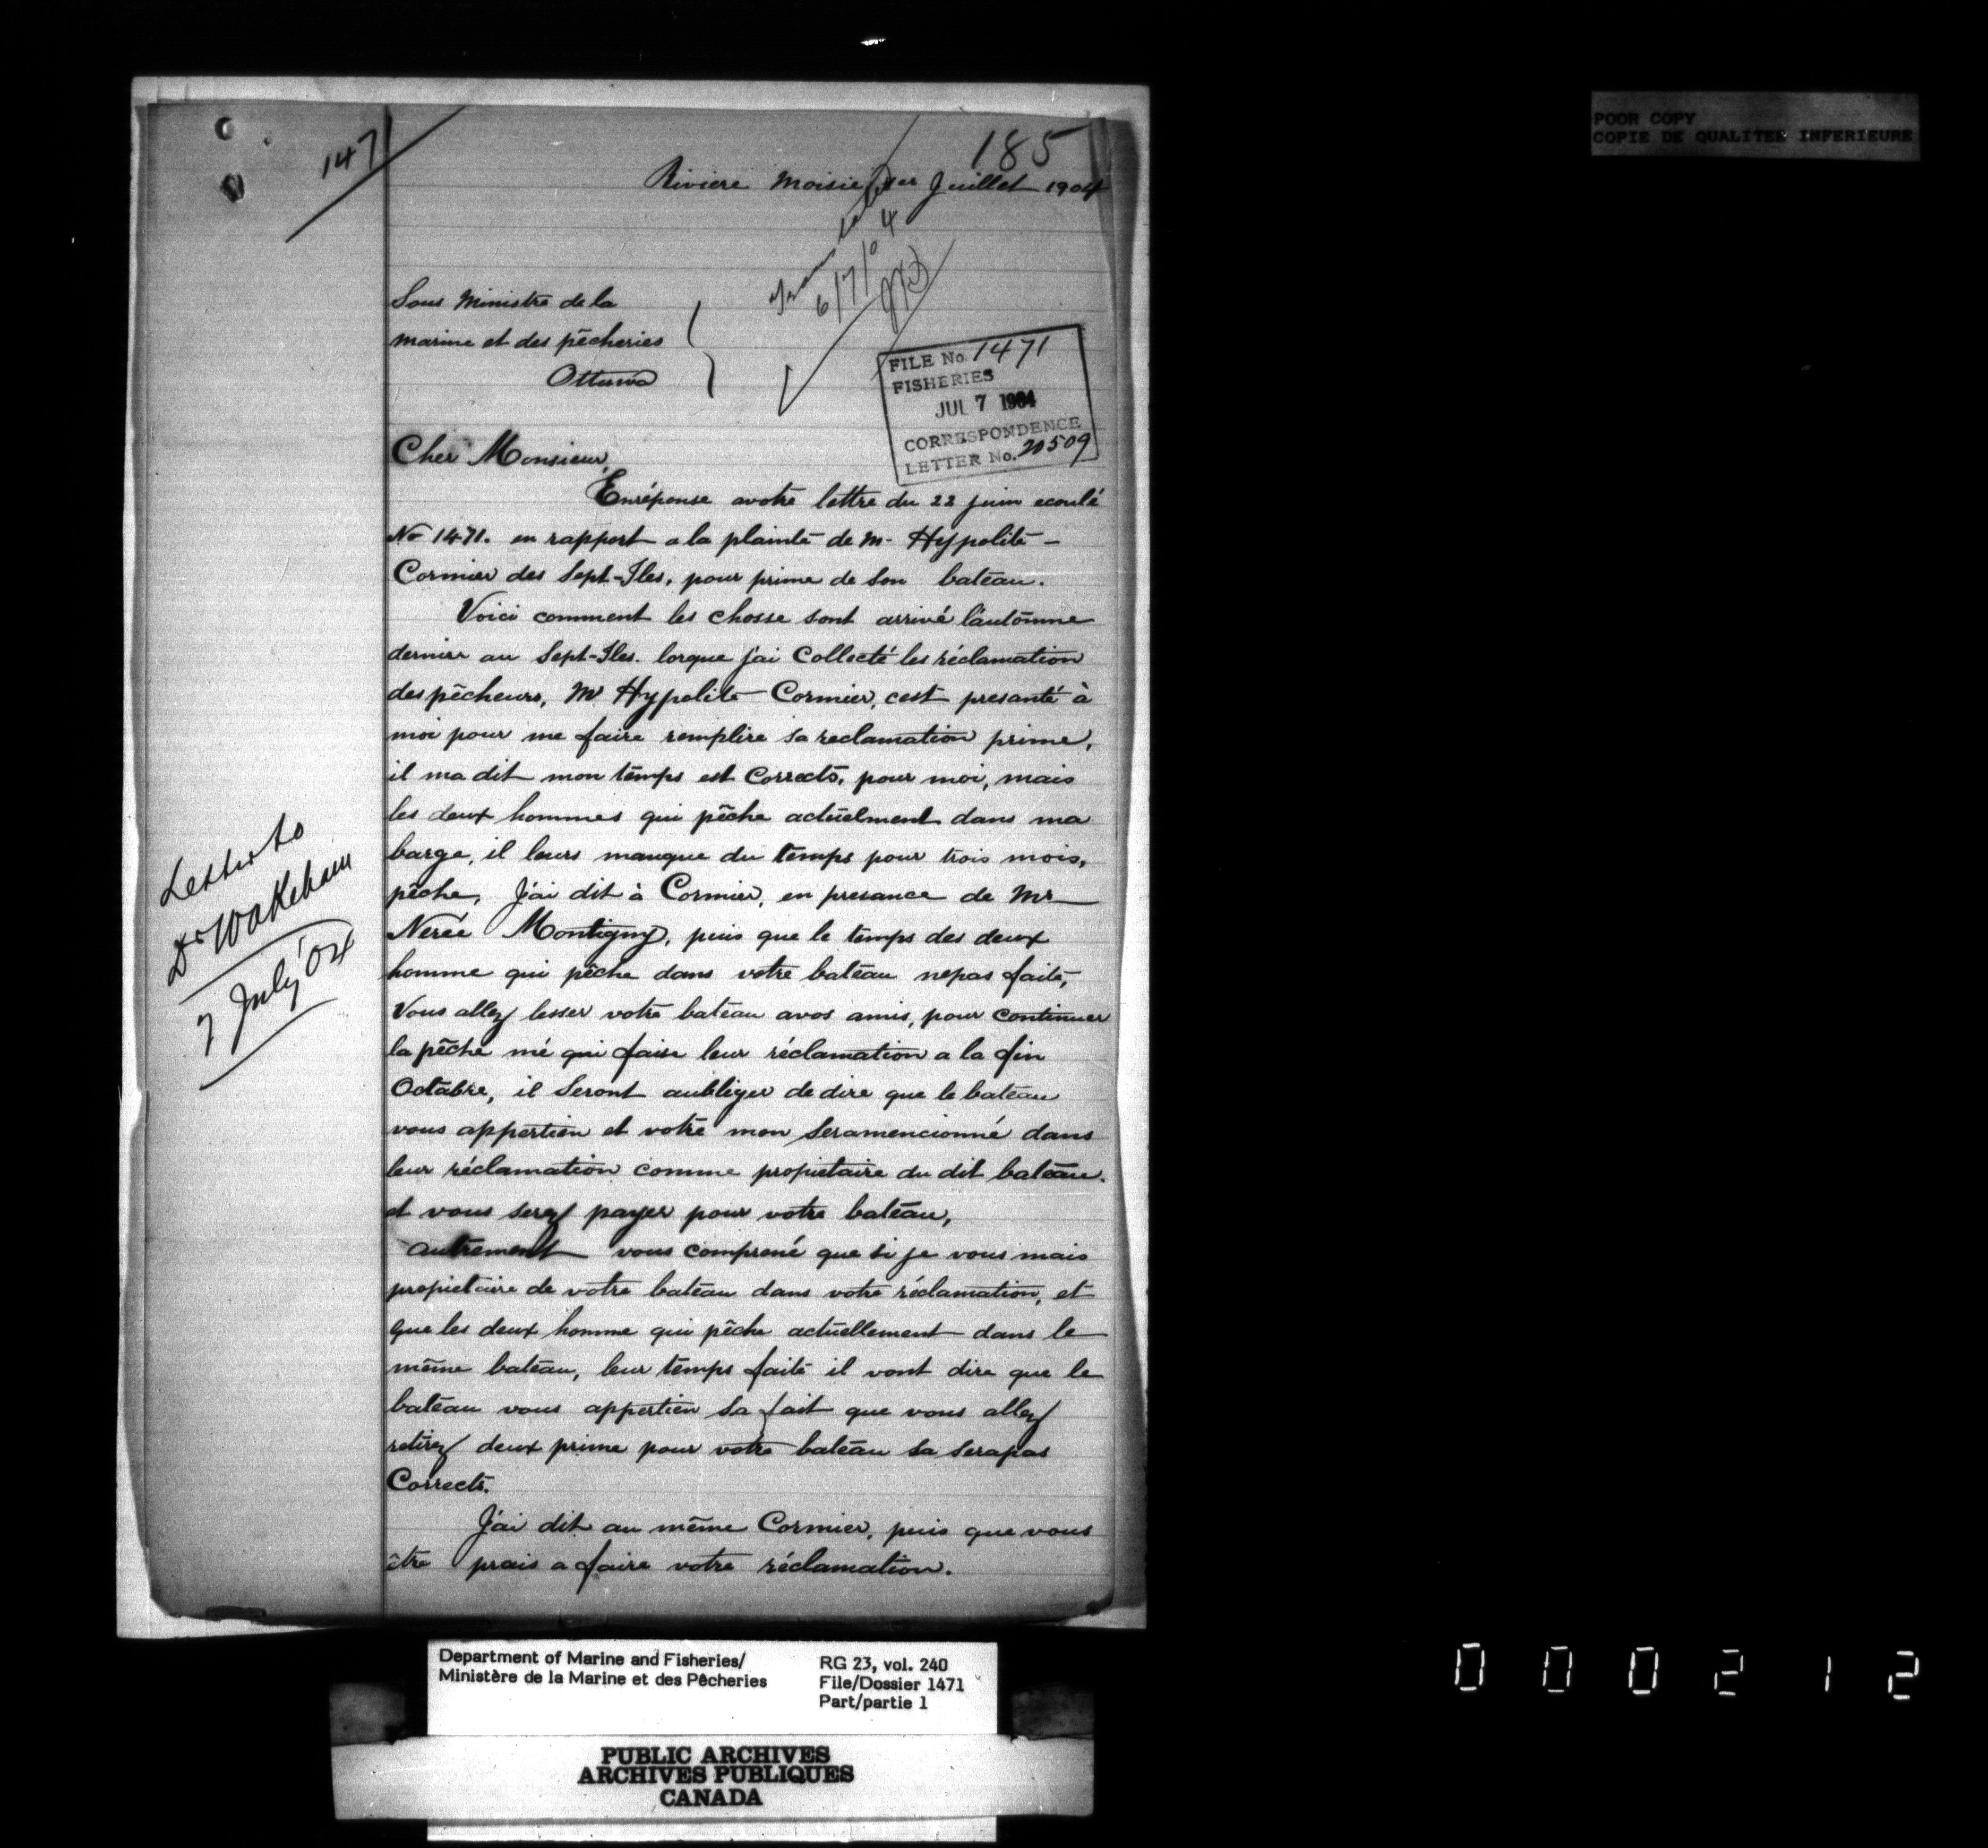 POOR COPY
COPIE DE QUALITEE INFERIEURE
1471
185
Riviere Moisie 1er Juillet 1904
Translated
6/7/04
Sous Ministre de la
marine et des pêcheries
Ottawa
FILE No. 1471
FISHERIES
JUL 7 1904
CORRESPONDENCE
LETTER No. 20509
Cher Monsieur,
Enréponse avotre lettre du 22 juin ecoulé
No 1471. en rapport a la plainte de M. Hypolite -
Cormier des Sept-Iles, pour prime de son bateau.
Voici comment les chosse sont arrivé l'autômne
dernier au Sept-Iles. lorque j'ai Collecté les réclamation
des pêcheurs, Mr Hypolite Cormier, cest presanté à
moi pour me faire remplire sa reclamation prime,
il ma dit mon temps est Corrects, pour moi, mais
les deux hommes qui pêche actuelment dans ma
barge, il leurs manque du temps pour trois mois,
pêche, J'ai dit à Cormier, en presance de Mr
Nereé Montigny, puis que le temps des deux
homme qui pêche dans votre bateau nepas faite,
Vous allez lesser votre bateau avos amis, pour continuer
la pêche mé qui faise leur réclamation a la fin
Octabre, il Seront aubliger de dire que le bateau
vous appertien et votre mon Seramencionné dans
leur réclamation comme propietaire du dit bateau.
et vous serez payer pour votre bateau,
autrement vous comprené que si je vous mais
propietaire de votre bateau dans votre réclamation, et
que les deux homme qui pêche actuellement dans le
même bateau, leur temps faite il vont dire que le
bateau vous appertien Sa fait que vous allez
retirez deux prime pour votre bateau Sa Serapas
Corrects.
J'ai dit au même Cormier, puis que vous
être prais a faire votre réclamation.
Letter to
Dr Wakeham
7 July '04
Department of Marine and Fisheries/
Ministère de la Marine et des Pêcheries
RG 23, vol. 240
File/Dossier 1471
Part/partie 1
PUBLIC ARCHIVES
ARCHIVES PUBLIQUES
CANADA
000212